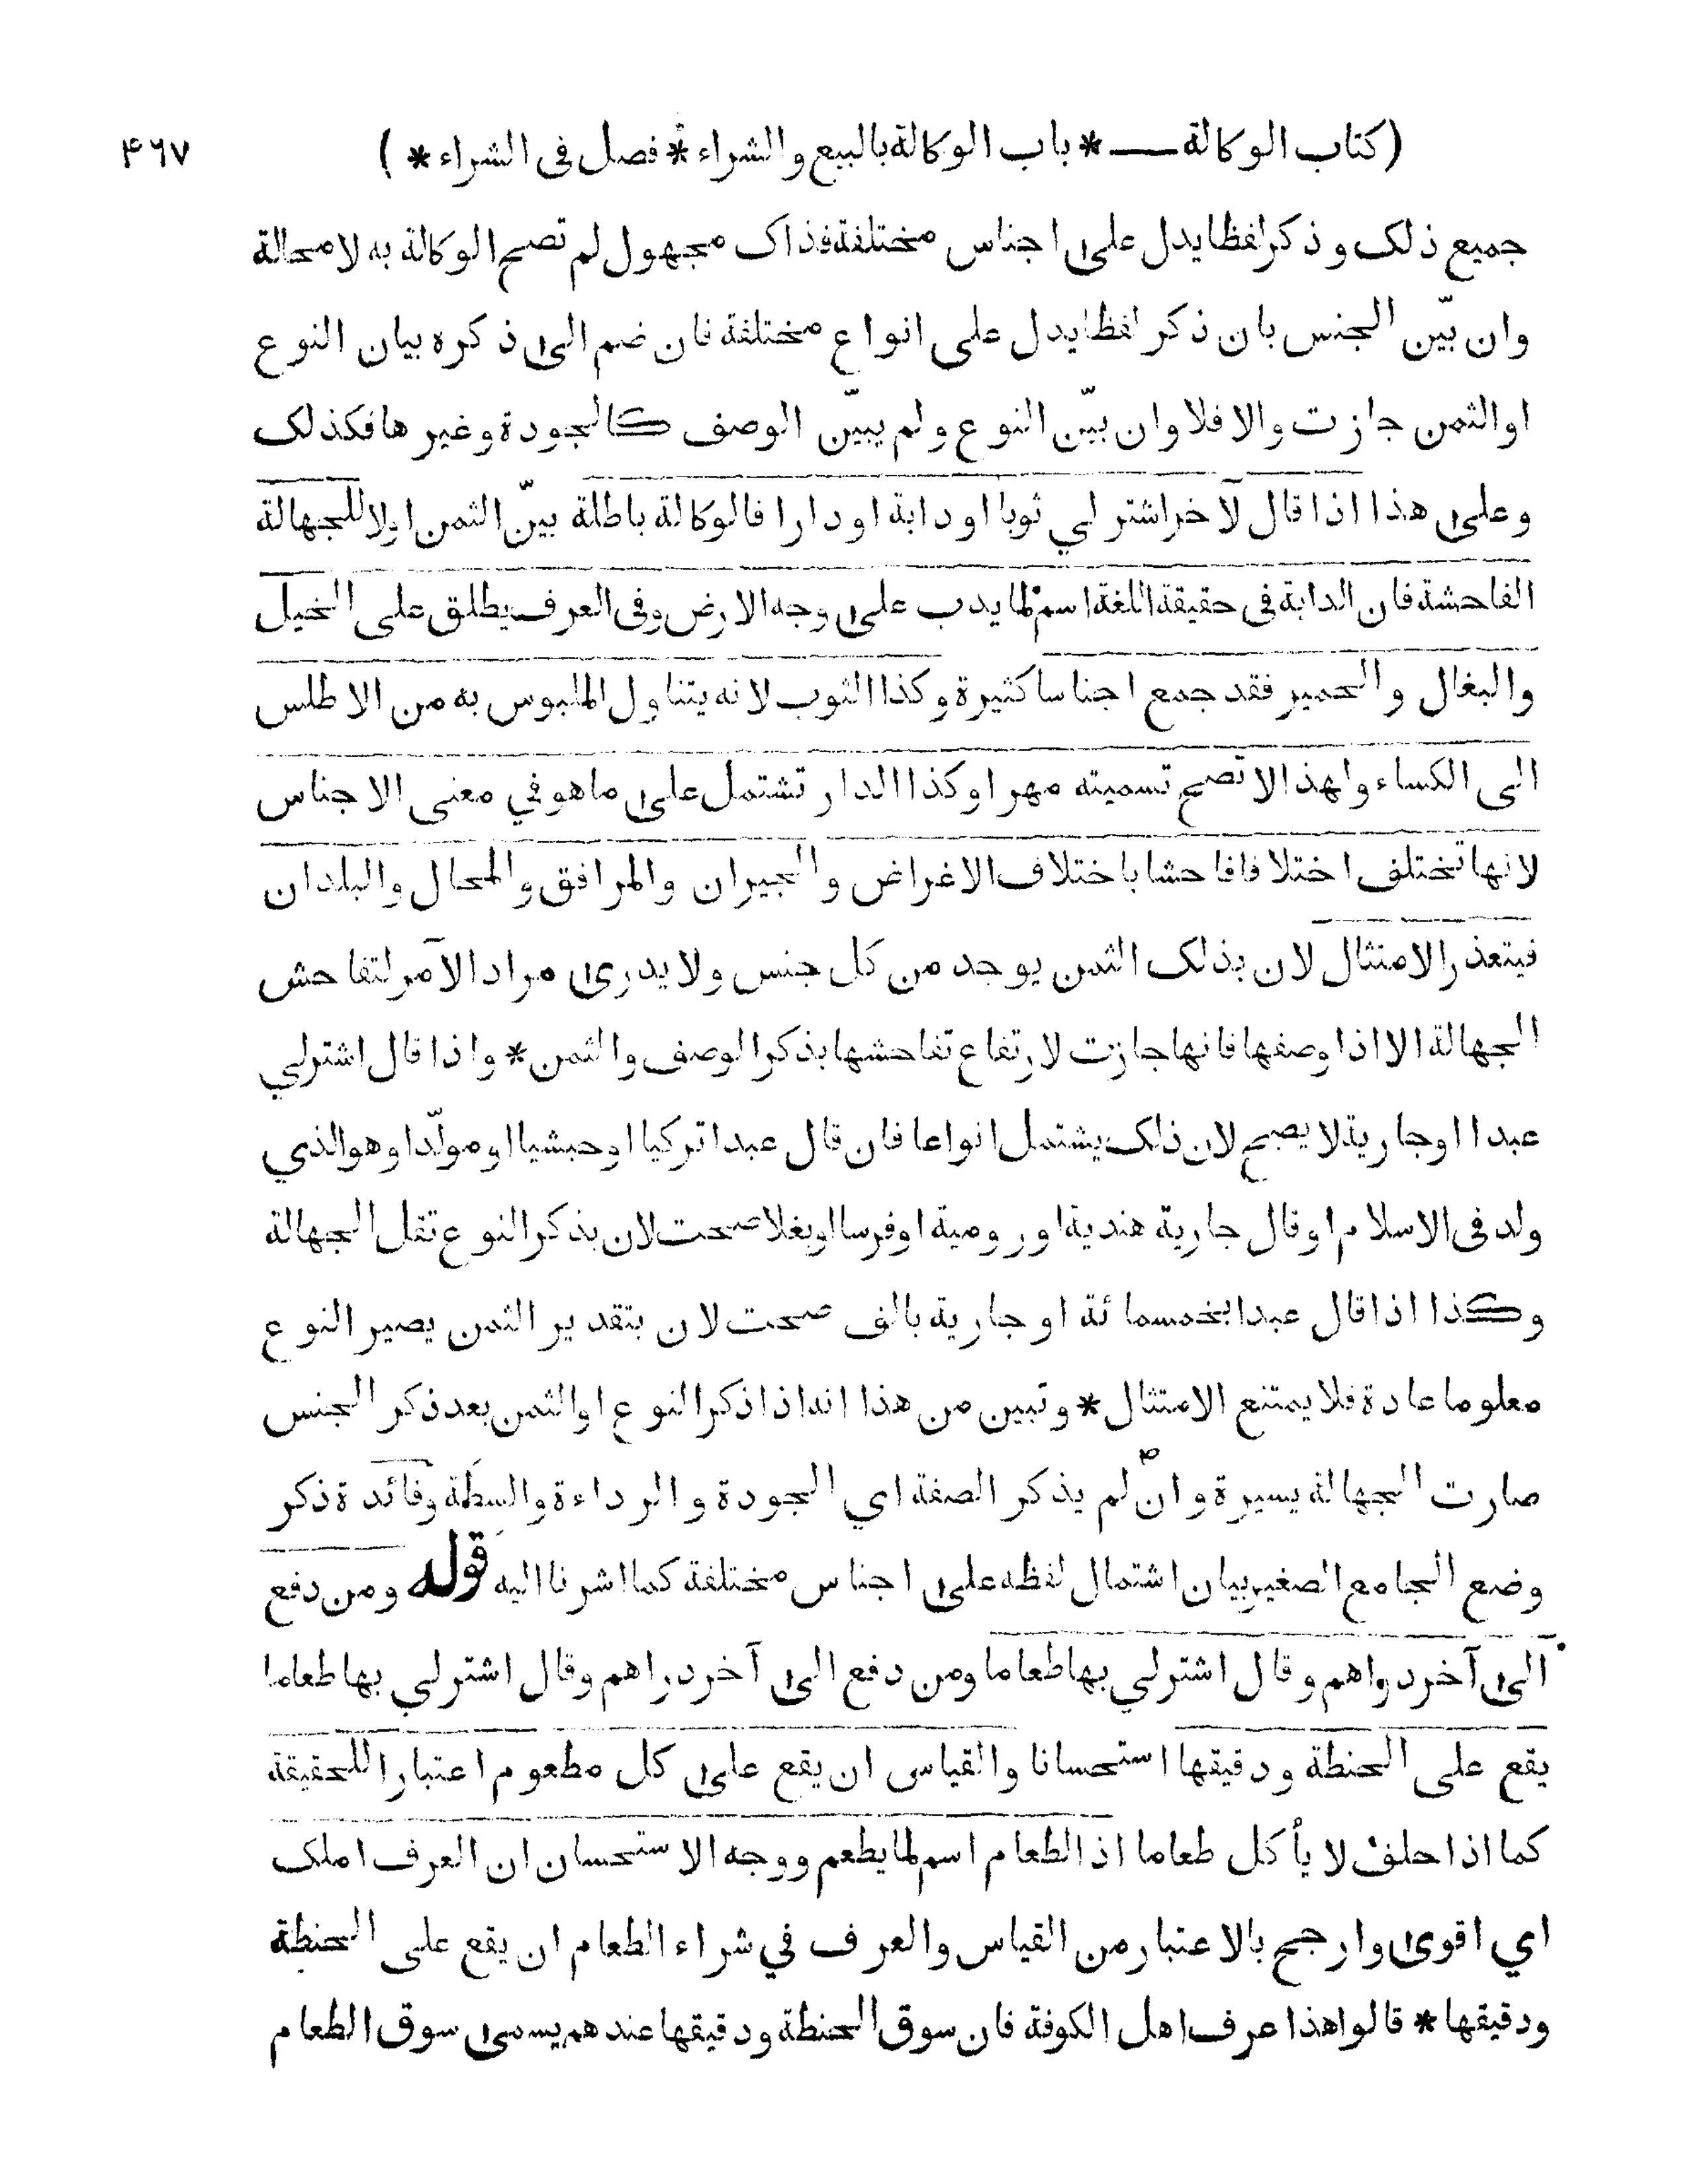 (كتاب الوكالة — * باب الوكالة بالبيع والشراء * فصل فى الشراء * ) ۴٦٧
جميع ذلك وذكر لفظا يدل على اجناس مختلفة فذاك مجهول لم تصح الوكالة به لا محالة
وان بيّن الجنس بان ذكر لفظا يدل على انواع مختلفة فان ضم الى ذكره بيان النوع
او الثمن جازت والا فلا وان بيّن النوع ولم يبيّن الوصف كالجودة وغيرها فكذلك
وعلى هذا اذا قال لآخر اشتر لي ثوبا او دابة او دارا فالوكالة باطلة بيّن الثمن او لا للجهالة
الفاحشة فان الدابة فى حقيقة اللغة اسم لما يدب على وجه الارض وفى العرف يطلق على الخيل
والبغال والحمير فقد جمع اجناسا كثيرة وكذا الثوب لانه يتناول الملبوس به من الاطلس
الى الكساء ولهذا لا تصح تسميته مهرا وكذا الدار تشتمل على ما هو في معنى الاجناس
لانها تختلف اختلافا فاحشا باختلاف الاغراض والجيران والمرافق والمحال والبلدان
فيتعذر الامتثال لان بذلك الثمن يوجد من كل جنس ولا يدرى مراد الآمر لتفاحش
الجهالة الا اذا وصفها فانها جازت لارتفاع تفاحشها بذكر الوصف والثمن * واذا قال اشتر لي
عبدا او جارية لا يصح لان ذلك يشتمل انواعا فان قال عبدا تركيا او حبشيا او مولّدا وهو الذي
ولد فى الاسلام او قال جارية هندية او رومية او فرسا او بغلا صحت لان بذكر النوع تقل الجهالة
وكذا اذا قال عبدا بخمسمائة او جارية بالف صحت لان بتقدير الثمن يصير النوع
معلوما عادة فلا يمتنع الامتثال * وتبين من هذا انه اذا ذكر النوع او الثمن بعد ذكر الجنس
صارت الجهالة يسيرة وان لم يذكر الصفة اي الجودة والرداءة والسطة وفائدة ذكر
وضع الجامع الصغير بيان اشتمال لفظه على اجناس مختلفة كما اشرنا اليه قوله ومن دفع
الى آخر دراهم وقال اشتر لي بها طعاما ومن دفع الى آخر دراهم وقال اشتر لي بها طعاما
يقع على الحنطة ودقيقها استحسانا والقياس ان يقع على كل مطعوم اعتبارا للحقيقة
كما اذا حلف لا يأكل طعاما اذ الطعام اسم لما يطعم ووجه الاستحسان ان العرف املك
اي اقوى وارجح بالاعتبار من القياس والعرف في شراء الطعام ان يقع على الحنطة
ودقيقها * قالوا هذا عرف اهل الكوفة فان سوق الحنطة ودقيقها عندهم يسمى سوق الطعام